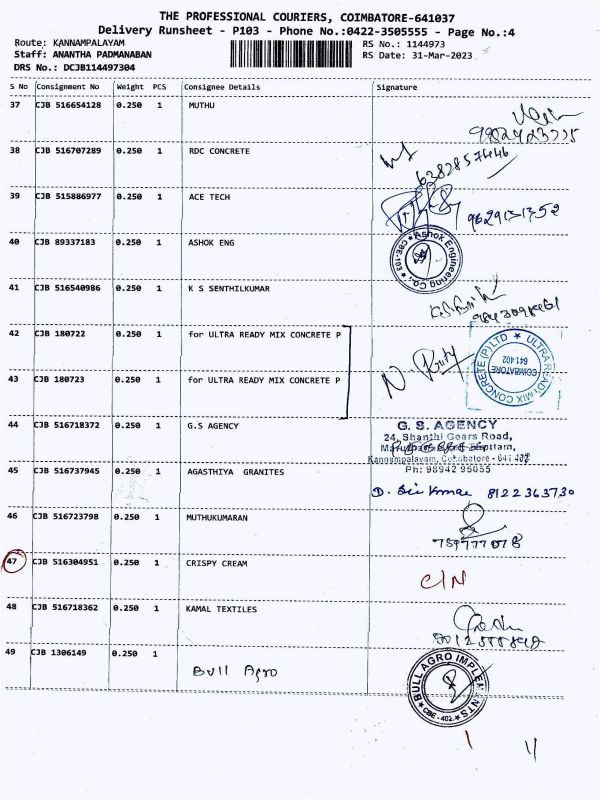 THE PROFESSIONAL COURIERS, COIMBATORE-641037
Delivery Runsheet - P103 - Phone No.:0422-3505555 - Page No.:4
Route: KANNAMPALAYAM RS No.: 1144973
Staff: ANANTHA PADMANABAN RS Date: 31-Mar-2023
DRS No.: DCJB114497304
S No Consignment No Weight PCS Consignee Details Signature
37 CJB 516654128 0.250 1 MUTHU
38 CJB 516707289 0.250 1 RDC CONCRETE
6382857446
39 CJB 515886977 0.250 1 ACE TECH
9629131352
40 CJB 89337183 0.250 1 ASHOK ENG
Ashok Engineering Co., CBE-103
41 CJB 516540986 0.250 1 K S SENTHILKUMAR
42 CJB 180722 0.250 1 for ULTRA READY MIX CONCRETE P
ULTRA READY MIX CONCRETE (P) LTD
COIMBATORE
641 402
43 CJB 180723 0.250 1 for ULTRA READY MIX CONCRETE P
44 CJB 516718372 0.250 1 G.S AGENCY
G. S. AGENCY
24, Shanthi Gears Road,
Kannampalayam, Coimbatore - 641 402
Ph: 98942 95055
45 CJB 516737945 0.250 1 AGASTHIYA GRANITES
8122363730
46 CJB 516723798 0.250 1 MUTHUKUMARAN
47 CJB 516304951 0.250 1 CRISPY CREAM
C/N
48 CJB 516718362 0.250 1 KAMAL TEXTILES
49 CJB 1306149 0.250 1
Bull Agro
BULL AGRO IMPLEMENTS
CBE - 402.